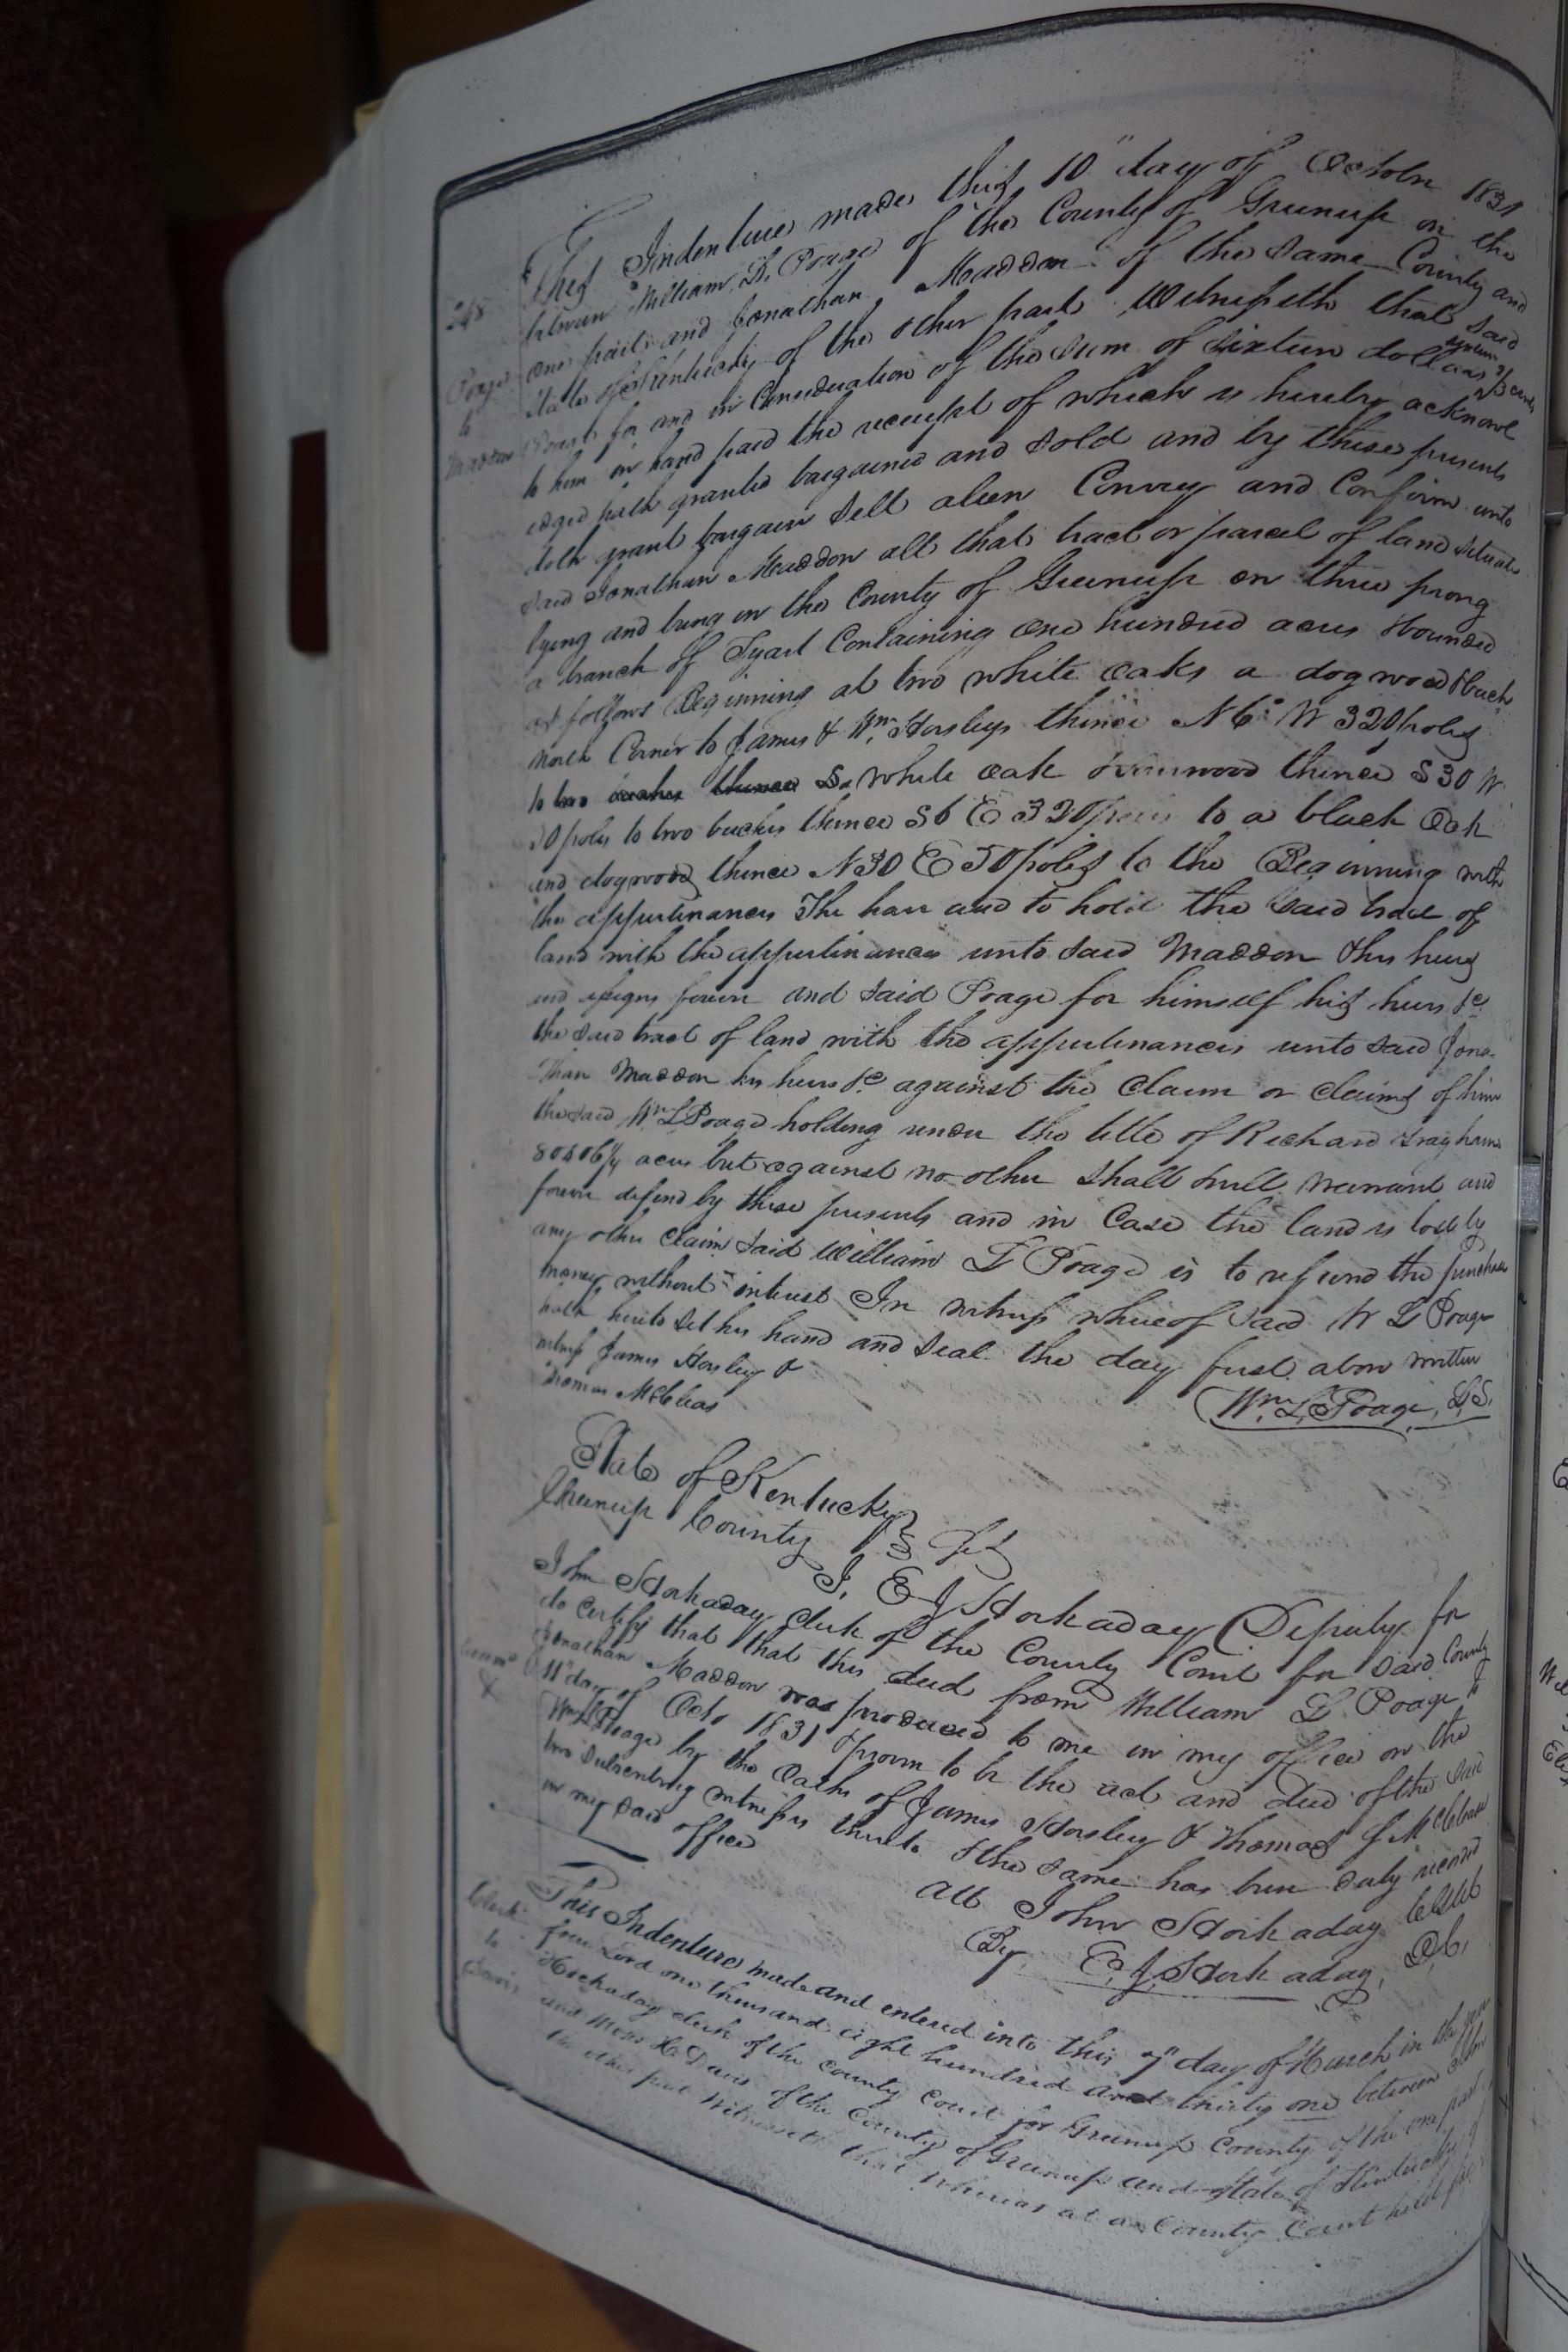 248
This Indenture made this 10" day of October 1831
between William L. Poage of the County of Greenup on the
Poage
to
Maddon
one part and Jonathan Maddon of the same County and
State of Kentucky of the other part Witnesseth that said
Poage for and in Consideration of the Sum of Sixteen dollars 2/3 cents
to him in hand paid the receipt of which is hereby acknowl
edged hath granted bargained and Sold and by these presents
doth grant bargain Sell alien Convey and Confirm unto
Said Jonathan Maddon all that tract or parcel of land situate
lying and being in the County of Greenup on three prong
a branch of Tygart Containing one hundred acres Bounded
as follows Beginning at two white oaks a dogwood & buch
north Corner to James & Wm. Horsleys thence N 6° W 320 poles
to two white oak thence S 30 W
50 poles to two buches thence S 6 E 320 poles to a black Oak
and dogwood thence N 30 E 50 poles to the Beginning with
the appurtinances The have and to hold the Said tract of
land with the appurtinances unto Said Maddon & his heirs
and assigns forever and Said Poage for himself his heirs &c
the said tract of land with the appurtinances unto said Jona-
than Maddon his heirs &c against the Claim or claims of him
the said Wm L Poage holding under the title of Richard Grayhams
acres but against no other Shall & will warrant and
forever defend by these presents and in Case the land is lost by
any other Claim Said William L Poage is to refund the purchase
money without intrest In witness whereof Said W L Poage
hath hereto Set his hand and Seal the day first above written
witness James Horsley &
Thomas
Wm. L. Poage, L.S.
State of Kentucky
Greenup County } Sct
I, E J Hockaday Deputy for
John Hockaday Clerk of the County Court for Said County
do Certify that that this deed from William L Poage to
Jonathan Maddon was produced to me in my office on the
11" day of Octo 1831 & proven to be the act and deed of the Said
Wm L Poage by the Oaths of James Horsley & Thomas J
two Subscribing witnesses thereto & the Same has been duly record
in my Said office
Att John Hockaday
By E. J. Hockaday, D.C.
This Indenture made and entered into this 7" day of March in the year
Clerk
to
Davis
of our Lord one thousand eight hundred and thirty one between John
Hockaday clerk of the county court for Greenup County of the one part
and Moses H Davis of the County of Greenup and State of Kentucky of
the other part Witnesseth that whereas at a County Court held for